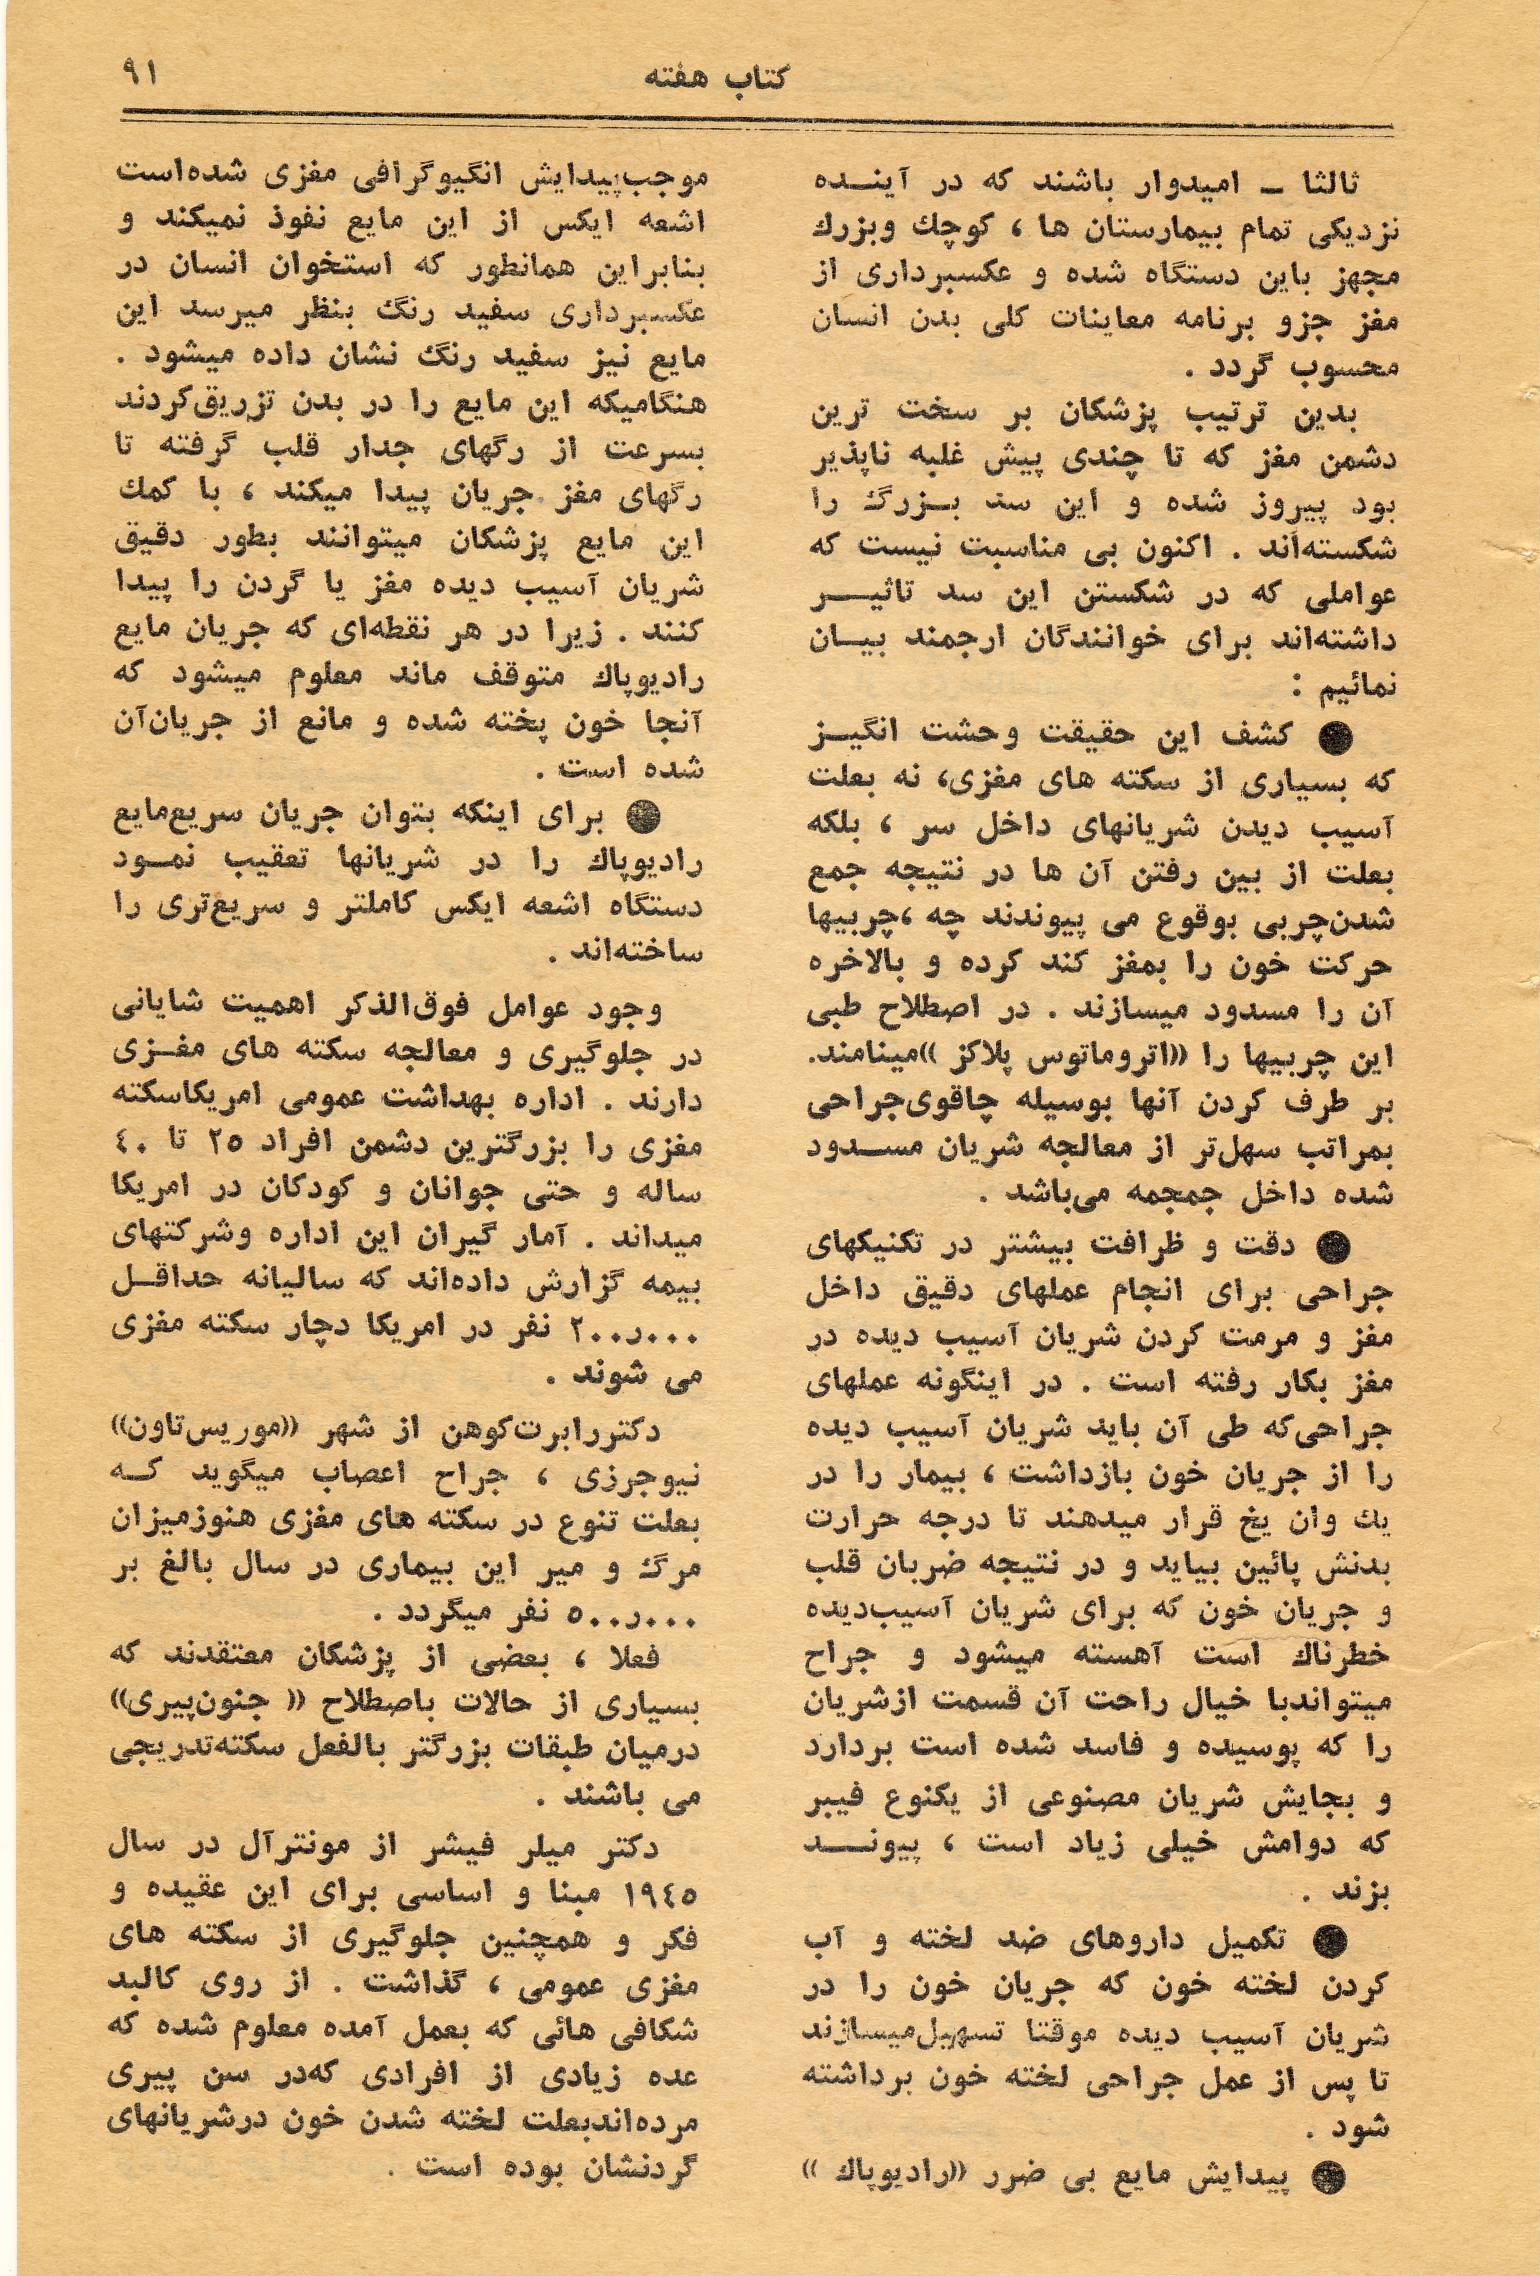 کتاب هفته
۹۱
ثالثا ـ امیدوار باشند که در آینـده
نزدیکی تمام بیمارستان ها ، کوچك وبزرك
مجهز باین دستگاه شده و عکسبرداری از
مغز جزو برنامه معاینات کلی بدن انسان
محسوب گردد .
بدین ترتیب پزشکان بر سخت ترین
دشمن مغز که تا چندی پیش غلبه ناپذیر
بود پیروز شده و این سد بـزرگ را
شکسته‌اند . اکنون بی مناسبت نیست که
عواملی که در شکستن این سد تاثیـــر
داشته‌اند برای خوانندگان ارجمند بیـان
نمائیم :
● کشف این حقیقت وحشت انگیـز
که بسیاری از سکته های مغزی، نه بعلت
آسیب دیدن شریانهای داخل سر ، بلکه
بعلت از بین رفتن آن ها در نتیجه جمع
شدن‌چربی بوقوع می پیوندند چه ،چربیها
حرکت خون را بمغز کند کرده و بالاخره
آن را مسدود میسازند . در اصطلاح طبی
این چربیها را ((اتروماتوس پلاکز ))مینامند.
بر طرف کردن آنها بوسیله چاقوی‌جراحی
بمراتب سهل‌تر از معالجه شریان مسـدود
شده داخل جمجمه می‌باشد .
● دقت و ظرافت بیشتر در تکنیکهای
جراحی برای انجام عملهای دقیق داخل
مغز و مرمت کردن شریان آسیب دیده در
مغز بکار رفته است . در اینگونه عملهای
جراحی‌که طی آن باید شریان آسیب دیده
را از جریان خون بازداشت ، بیمار را در
یك وان یخ قرار میدهند تا درجه حرارت
بدنش پائین بیاید و در نتیجه ضربان قلب
و جریان خون که برای شریان آسیب‌دیده
خطرناك است آهسته میشود و جراح
میتواندبا خیال راحت آن قسمت ازشریان
را که پوسیده و فاسد شده است بردارد
و بجایش شریان مصنوعی از یکنوع فیبر
که دوامش خیلی زیاد است ، پیونـــد
بزند .
● تکمیل داروهای ضد لخته و آب
کردن لخته خون که جریان خون را در
شریان آسیب دیده موقتا تسهیل‌میسازند
تا پس از عمل جراحی لخته خون برداشته
شود .
● پیدایش مایع بی ضرر ((رادیوپاك ))
موجب‌پیدایش انگیوگرافی مغزی شده‌است
اشعه ایکس از این مایع نفوذ نمیکند و
بنابراین همانطور که استخوان انسان در
عکسبرداری سفید رنگ بنظر میرسد این
مایع نیز سفید رنگ نشان داده میشود .
هنگامیکه این مایع را در بدن تزریق‌کردند
بسرعت از رگهای جدار قلب گرفته تا
رگهای مغز جریان پیدا میکند ، با کمك
این مایع پزشکان میتوانند بطور دقیق
شریان آسیب دیده مغز یا گردن را پیدا
کنند . زیرا در هر نقطه‌ای که جریان مایع
رادیوپاك متوقف ماند معلوم میشود که
آنجا خون پخته شده و مانع از جریان‌آن
شده است .
● برای اینکه بتوان جریان سریع‌مایع
رادیوپاك را در شریانها تعقیب نمـود
دستگاه اشعه ایکس کاملتر و سریع‌تری را
ساخته‌اند .
وجود عوامل فوق‌الذکر اهمیت شایانی
در جلوگیری و معالجه سکته های مغـزی
دارند . اداره بهداشت عمومی امریکاسکته
مغزی را بزرگترین دشمن افراد ٢٥ تا ٤٠
ساله و حتی جوانان و کودکان در امریکا
میداند . آمار گیران این اداره وشرکتهای
بیمه گزارش داده‌اند که سالیانه حداقـل
٢٠٠ر٠٠٠ نفر در امریکا دچار سکته مغزی
می شوند .
دکتررابرت‌کوهن از شهر ((موریس‌تاون))
نیوجرزی ، جراح اعصاب میگوید کـه
بعلت تنوع در سکته های مغزی هنوزمیزان
مرگ و میر این بیماری در سال بالغ بر
٥٠٠ر٠٠٠ نفر میگردد .
فعلا ، بعضی از پزشکان معتقدند که
بسیاری از حالات باصطلاح (( جنون‌پیری))
درمیان طبقات بزرگتر بالفعل سکته‌تدریجی
می باشند .
دکتر میلر فیشر از مونترآل در سال
١٩٤٥ مبنا و اساسی برای این عقیده و
فکر و همچنین جلوگیری از سکته های
مغزی عمومی ، گذاشت . از روی کالبد
شکافی هائی که بعمل آمده معلوم شده که
عده زیادی از افرادی که‌در سن پیری
مرده‌اندبعلت لخته شدن خون درشریانهای
گردنشان بوده است .